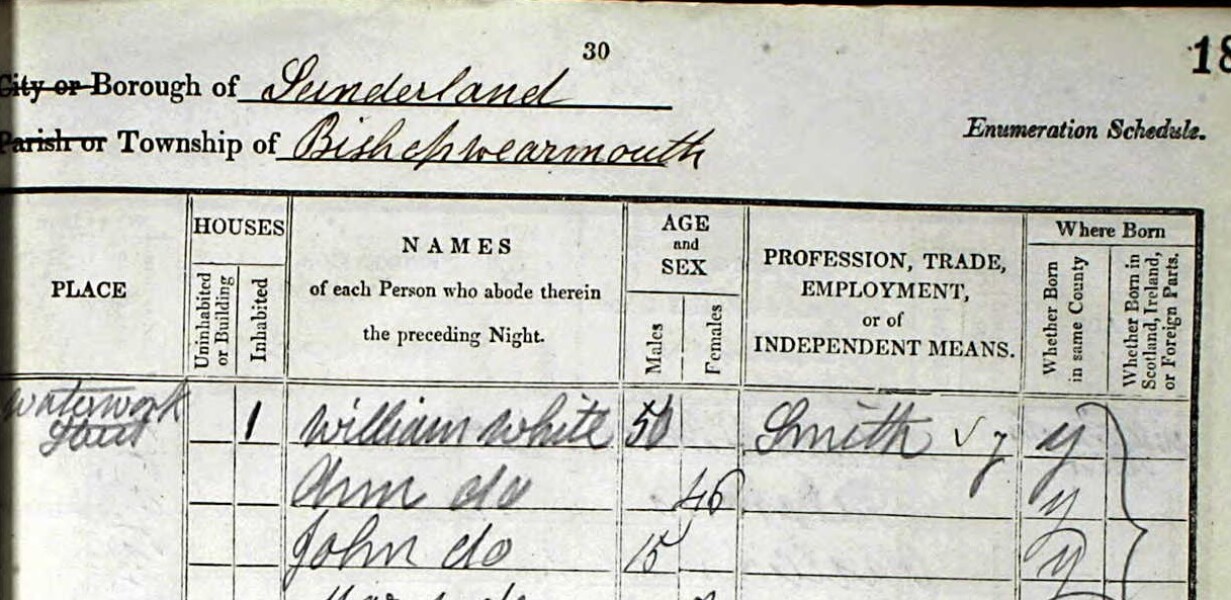 30
18
City or Borough of Sunderland
Parish or Township of Bishopwearmouth
Enumeration Schedule.
PLACE
HOUSES
Uninhabited or Building
Inhabited
NAMES
of each Person who abode therein
the preceding Night.
AGE
and
SEX
Males
Females
PROFESSION, TRADE,
EMPLOYMENT,
or of
INDEPENDENT MEANS.
Where Born
Whether Born in same County
Whether Born in Scotland, Ireland, or Foreign Parts.
Waterwork Street 1 William White 50 Smith y
Ann do 46 y
John do 15 y